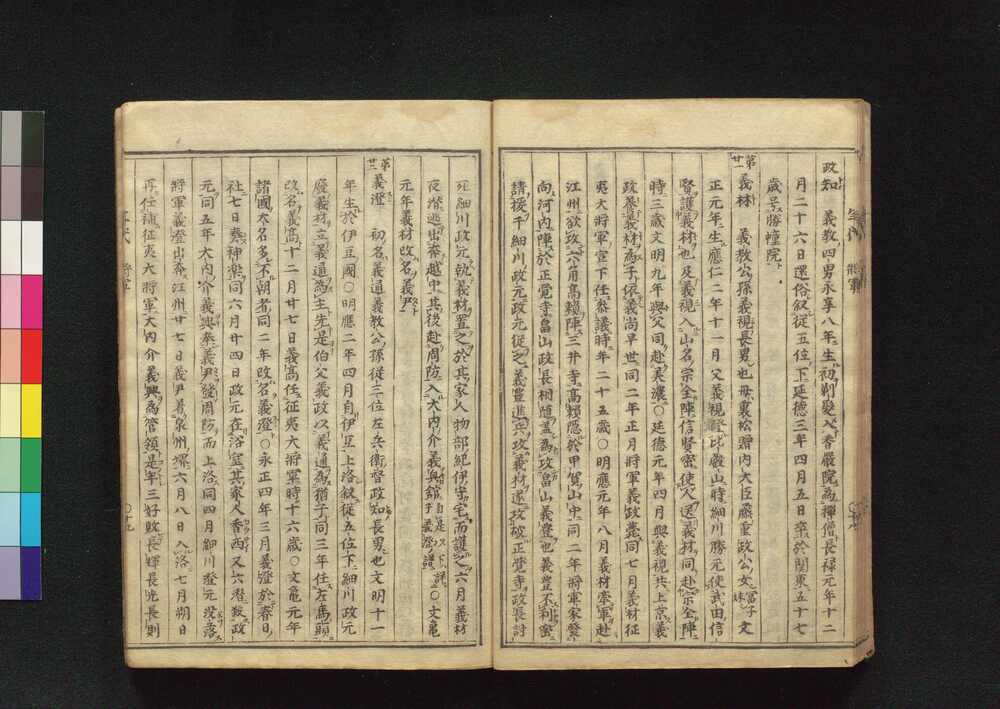 政知　義教四男永享八年生初剃髪入香嚴院為禅僧長禄元年十二
月二十六日還俗叙從五位下延徳三年四月五日卒於関東五十七
歳号勝幢院
第廿一義材　義教公孫義視長男也母裏松贈内大臣藤重政公女富子妹文
正元年生應仁二年十一月父義視登比叡山時細川勝元使武田信
賢護義材也及義視入山名宗全陣信賢密使人送義材同赴宗全陣
時三歳文明九年與父同赴美濃〇延徳元年四月與義視共上京義
政養義材為子依義尚早世同二年正月將軍義政薨同七月義材征
夷大將軍宣下任参議時年二十五歳〇明應元年八月義材率軍赴
江州欲攻六角高頼陣三井寺高頼隠於甲賀山中同二年將軍家發
向河内陣於正覚寺畠山政長相随盖為攻畠山義豊也義豊不利密
請援于細川政元政元從之義豊進兵攻義材還攻破正覚寺政長討
死細川政元執義材置之於其家人物部紀伊守宅而護之六月義材
夜潜逃出奔越中其後赴周防入大内介義興舘〇文亀
元年義材改名義尹
第廿二義澄　初名義通義教公孫從三位左兵衛督政知長男也文明十一
年生於伊豆國〇明應二年四月自伊豆上洛叙從五位下細川政元
廢義材立義通為主先是伯父義政以義通為猶子同三年任左馬頭
改名義高十二月廿七日義高任征夷大將軍時十六歳〇文亀元年
諸國大名多不朝者同二年改名義澄〇永正四年三月義澄於春日
社七日奏神楽同六月廿四日政元在浴室其家人香西又六潜殺政
元同五年大内介義興奉義尹發周防而上洛同四月細川澄元没落
將軍義澄出奔江州廿七日義尹着泉州堺六月八日入洛七月朔日
再任補征夷大將軍大内介義興為管領是年三好敗長輝長光長則